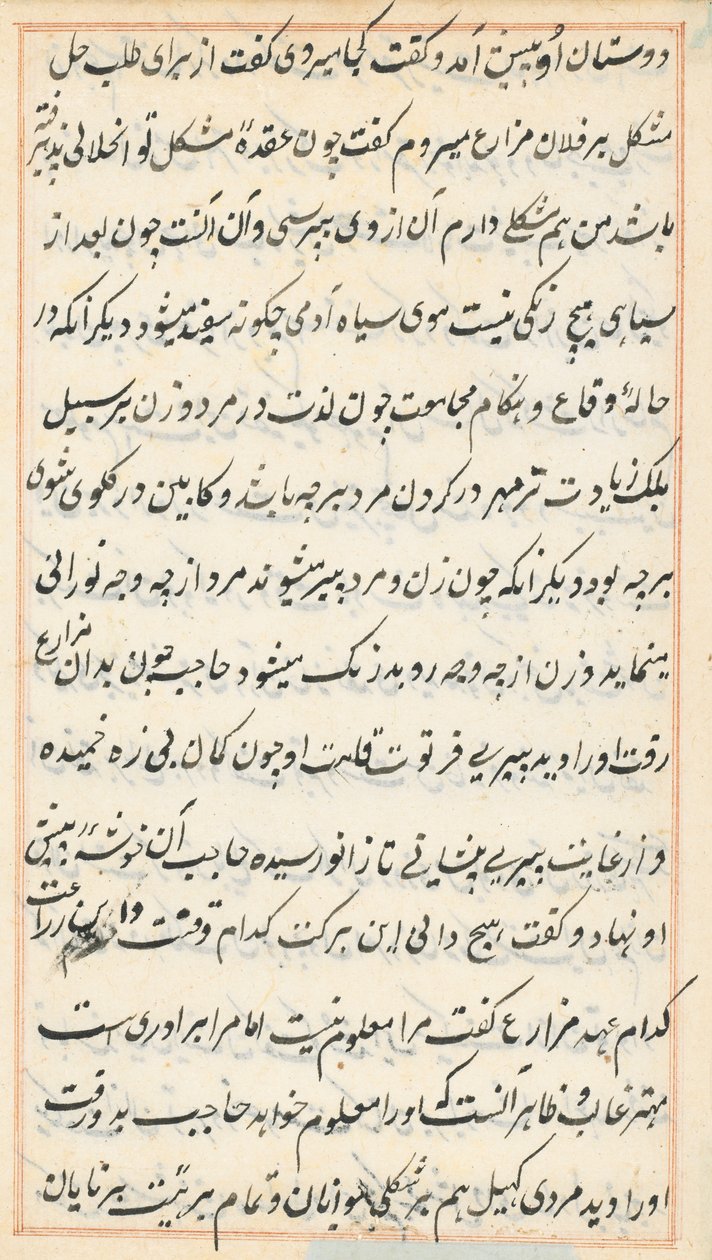 دوستان او پیش آمد و کفت کجا میروی کفت از برای طلب حل
مشکل بر فلان مزارع میروم کفت چون عقدهٔ مشکل تو انحلالی پذیرفته
باشد من هم مشکلے دارم آن از وی بپرسی و آن آنست چون بعد از
سیاهی هیچ رنکی نیست موی سیاه آدمی چکونه سفید میشود دیکر آنکه در
حالهٔ وقاع و هنکام مجامعت چون لذت در مرد و زن بر سبیل
بلک زیادت تر مهر در کردن مرد بر چه باشد و کابین در کلوی شوی
بر چه بود دیکر آنکه چون زن و مرد پیر میشوند مرد از چه وجه نورانی
مینماید و زن از چه وجه رو بد رنک میشود حاجب چون بدان مزارع
رفت او را دید پیرے فرتوت قامت او چون کمان بی زه خمیده
و از غایت پیرے پیشانے تا زانو رسیده حاجب آن خوشهٔ پیش
او نهاد و کفت هیچ دانی این برکت کدام وقتست و این زراعت
کدام عهد مزارع کفت مرا معلوم نیست اما مرا برادری است
مهتر غالب و ظاهر آنست که او را معلوم خواهد حاجب بدو رفت
او را دید مردی کهل هم بر شکل جوانان و تمام بر هیئت برنایان